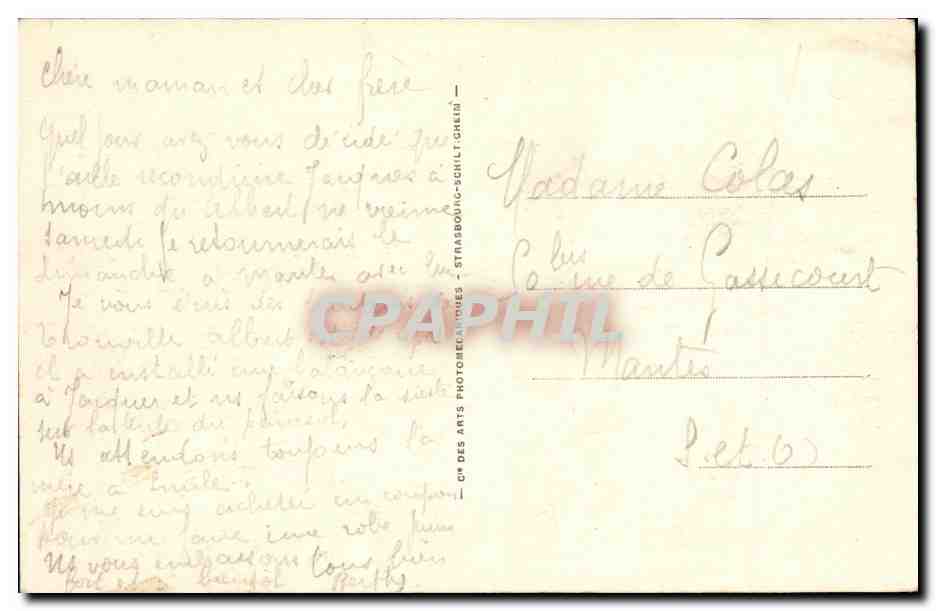 Chère maman et cher frère
Quel jour avez vous décidé que
j'aille reconduire Jacques à
moins qu'Albert ne vienne
samedi je retournerais le
dimanche à Mantes avec lui.
Je vous écris des
Trouville Albert
il a installé une balançoire
à Jacques et ns faisons la sieste
sur la du parasol,
Ns attendons toujours la
mère à Emile.
Je me suis acheter un coupon
pour me faire une robe
Ns vous embrassons tous bien
fort et à bientôt Berthe.
— Cie DES ARTS PHOTOMECANIQUES - STRASBOURG-SCHILTIGHEIM —
Madame Colas
bis rue de Gassicourt
Mantes
S. et O
CPAPHIL